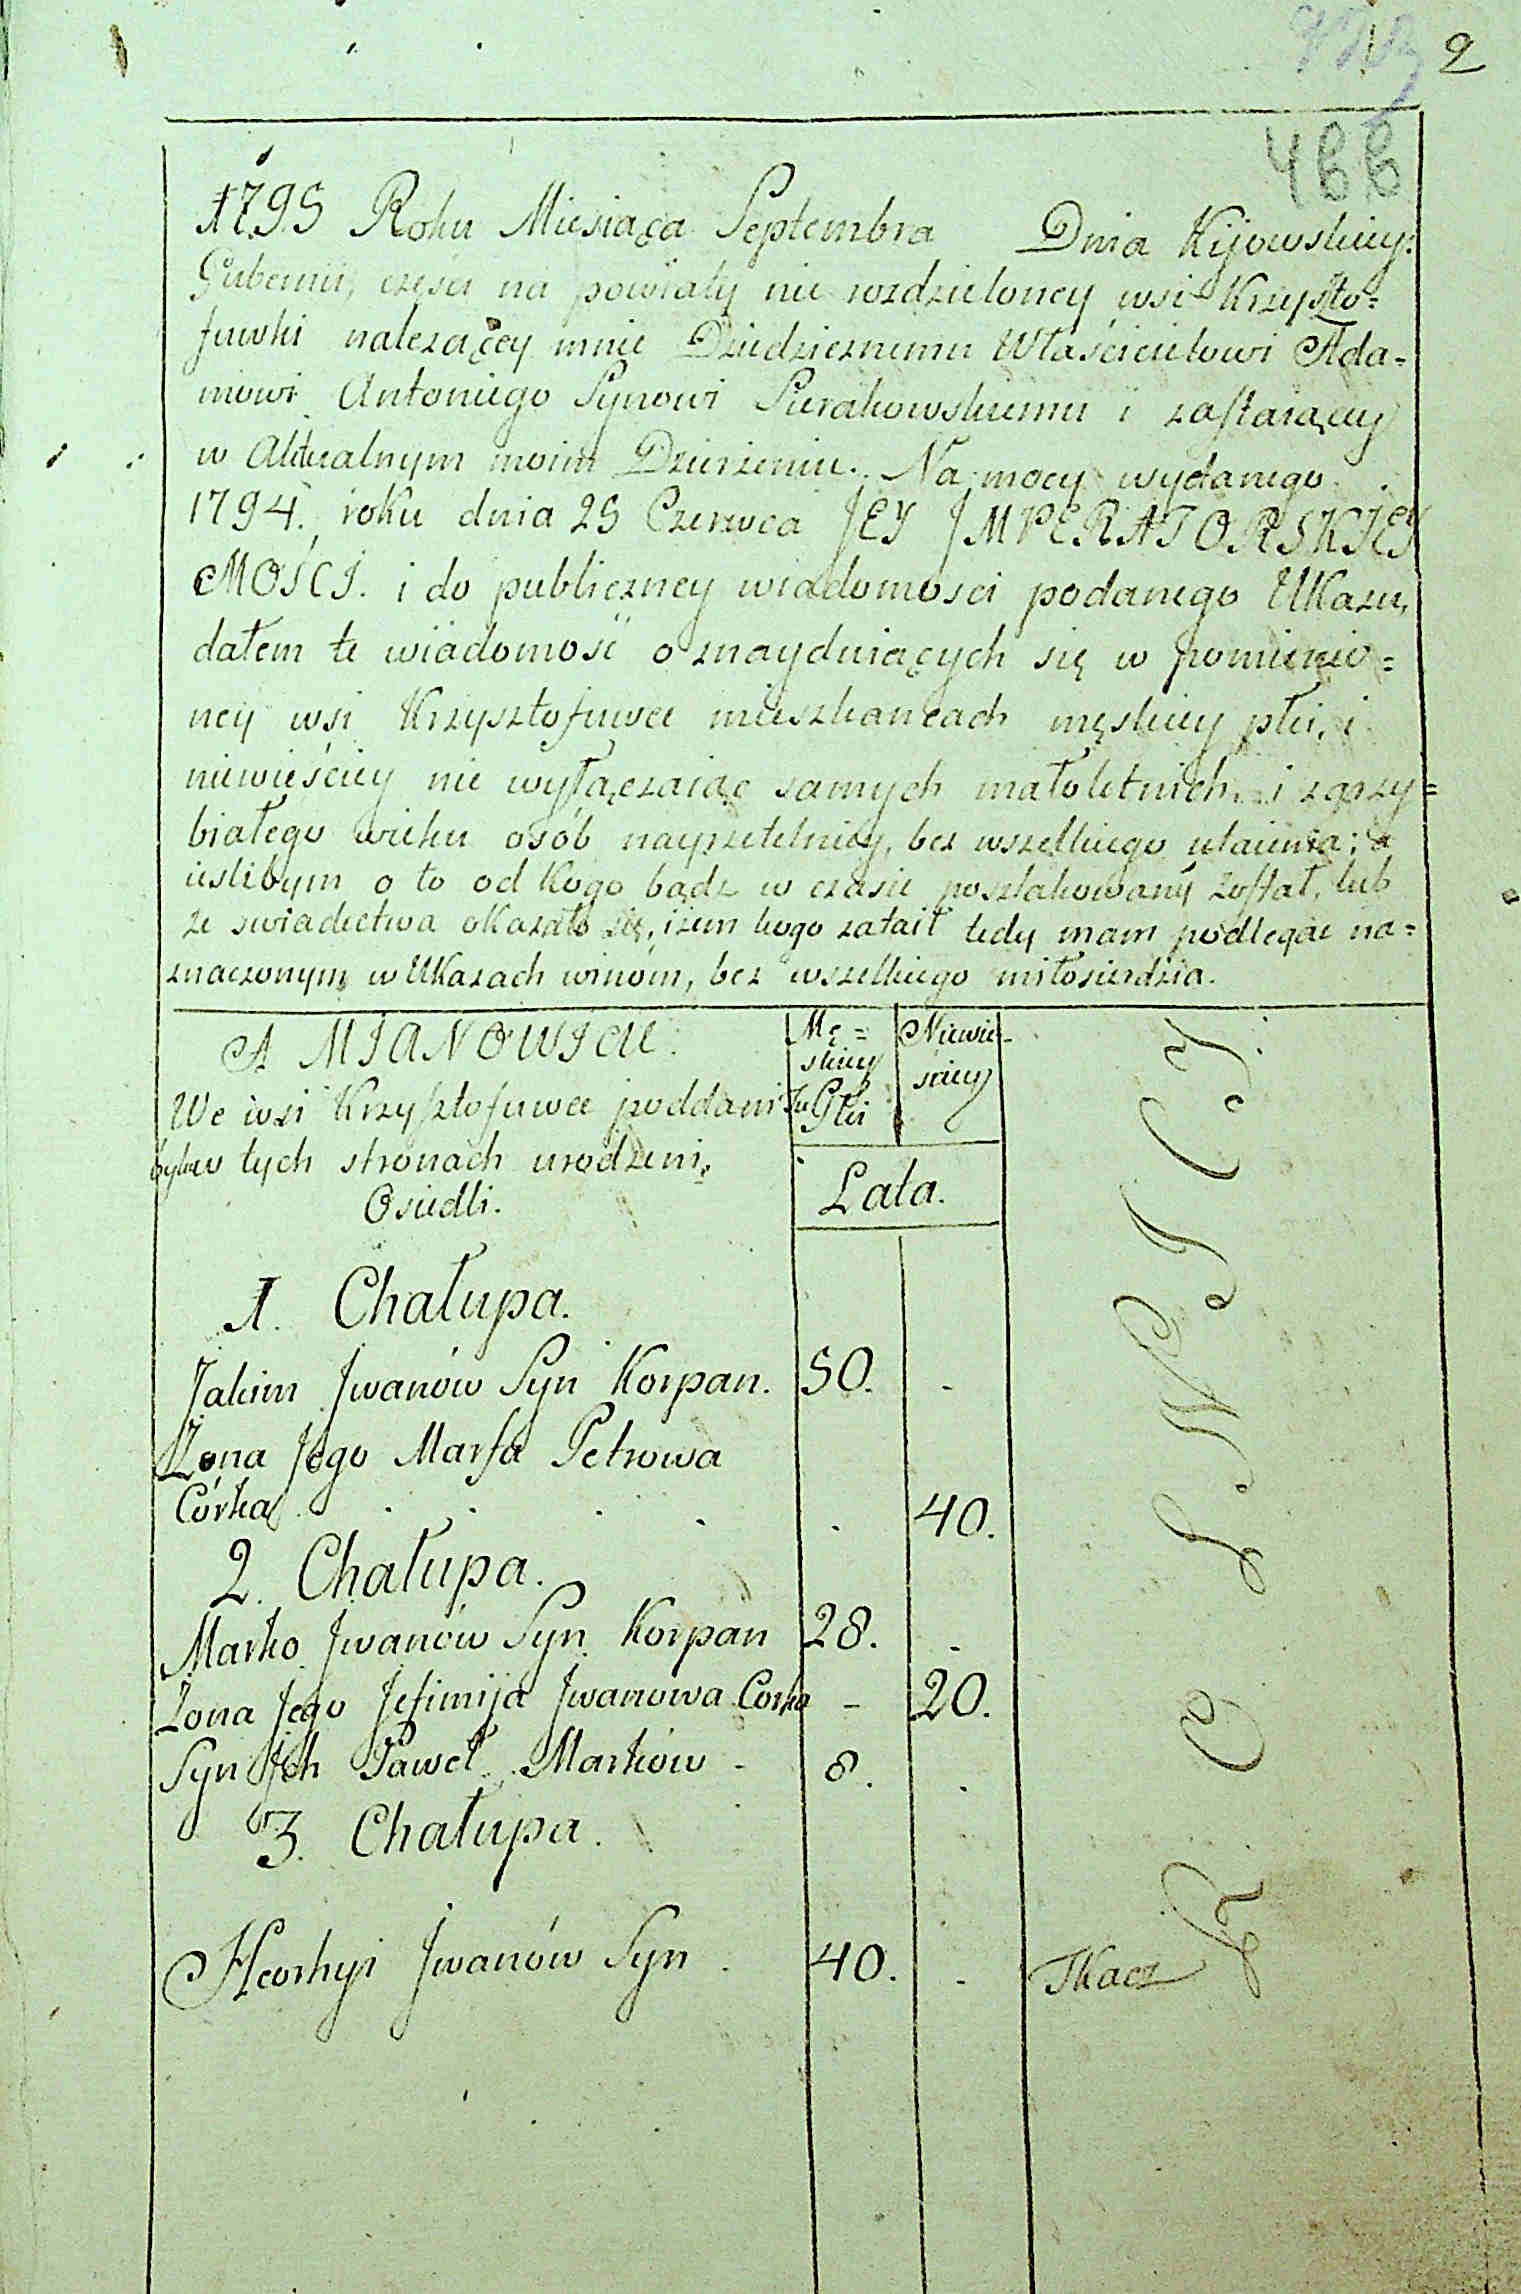 2
466
1795 Roku Miesiąca Septembra Dnia Kijowskiey
Gubernii, części na powiaty nie rozdzieloney wsi Krzyszto=
fuwki należącey mnie Dziedzicznemu Właścicielowi Ada=
mowi Antoniego Synowi Sierakowskiemu i zostaiącey
w Aktualnym moim Dzierżeniu. Na mocy wydanego
1794. roku dnia 25 Czerwca JEY JMPERATORSKIEY
MOŚCJ. i do publiczney wiadomosci podanego Ukazu,
dałem te wiadomość o znayduiących się w pomienio=
ney wsi Krzysztofuwce mieszkancach męskiey płci, i
niewieściey nie wyłączaiąc samych małoletnich, i zgrzy=
białego wieku osób nayrzetelniey, bez wszelkiego utaienia; a
ieslibym o to od kogo bądz w czasie poszlakowany został, lub
ze swiadectwa okazało się, iżem kogo zataił tedy mam podlegać na=
znaczonym w Ukazach winom, bez wszelkiego miłosierdzia.
A MJANOWJCIE.
We wsi Krzysztofuwce poddani
w tych stronach urodzeni,
Osiedli.
Mę=
skiey
Płci
Niewie-
sciey
Lata.
1. Chałupa.
Jakim Jwanów Syn Korpan. 50. -
Żona Jego Marfa Petrowa
Córka . . . . . . 40.
2. Chałupa.
Marko Jwanów Syn Korpan 28. -
Zona Jego Jefimija Jwanowa Corka - 20.
Syn Jch Paweł Marków - 8. .
3. Chałupa.
Heorhyi Jwanów Syn . 40. . Tkacz